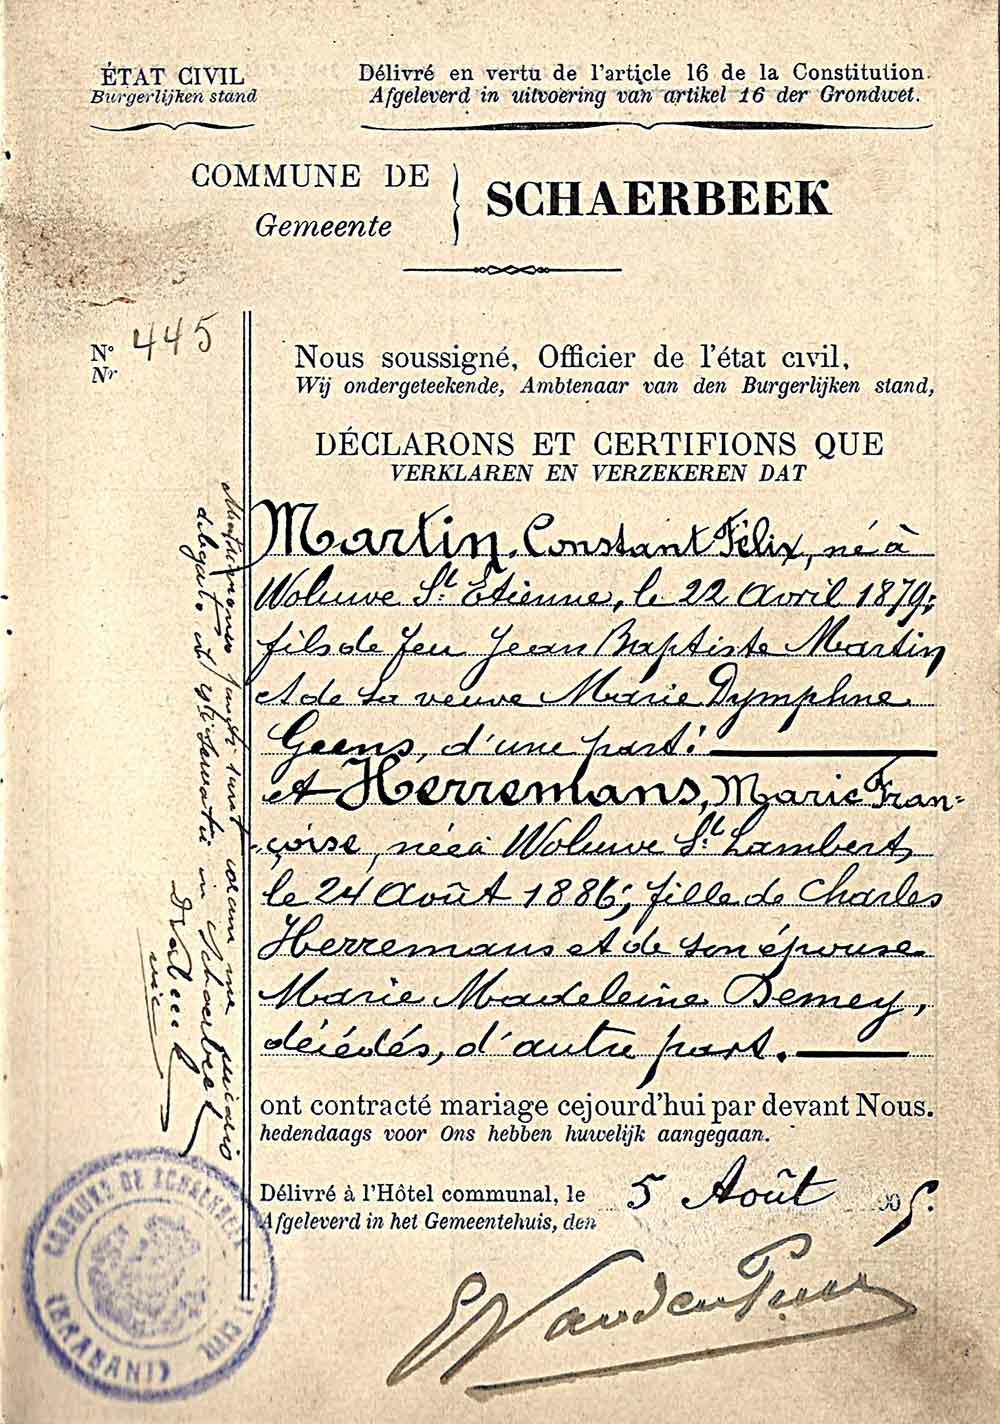 ÉTAT CIVIL
Burgerlijken stand
Délivré en vertu de l'article 16 de la Constitution.
Afgeleverd in uitvoering van artikel 16 der Grondwet.
COMMUNE DE
Gemeente
SCHAERBEEK
N° 445
Nr
Nous soussigné, Officier de l'état civil,
Wij ondergeteekende, Ambtenaar van den Burgerlijken stand,
DÉCLARONS ET CERTIFIONS QUE
VERKLAREN EN VERZEKEREN DAT
Martin, Constant Félix, né à
Woluwe St. Etienne, le 22 avril 1879;
fils de feu Jean Baptiste Martin
et de sa veuve Marie Dymphne
Geens, d'une part:
et Herremans, Marie Fran=
çoise, née à Woluwe St. Lambert,
le 24 Août 1886; fille de Charles
Herremans et de son épouse
Marie Madeleine Demey,
décédés, d'autre part.
ont contracté mariage cejourd'hui par devant Nous.
hedendaags voor Ons hebben huwelijk aangegaan.
Délivré à l'Hôtel communal, le 5 Août 1905.
Afgeleverd in het Gemeentehuis, den
Matrimonium juncti sunt coram me vicario
delegato in Schaerbeek
COMMUNE DE SCHAERBEEK
ETAT CIVIL
(BRABANT)